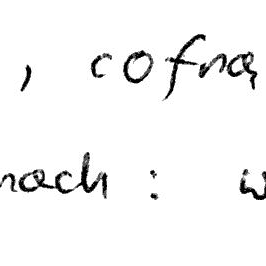 , cofną
nach : w